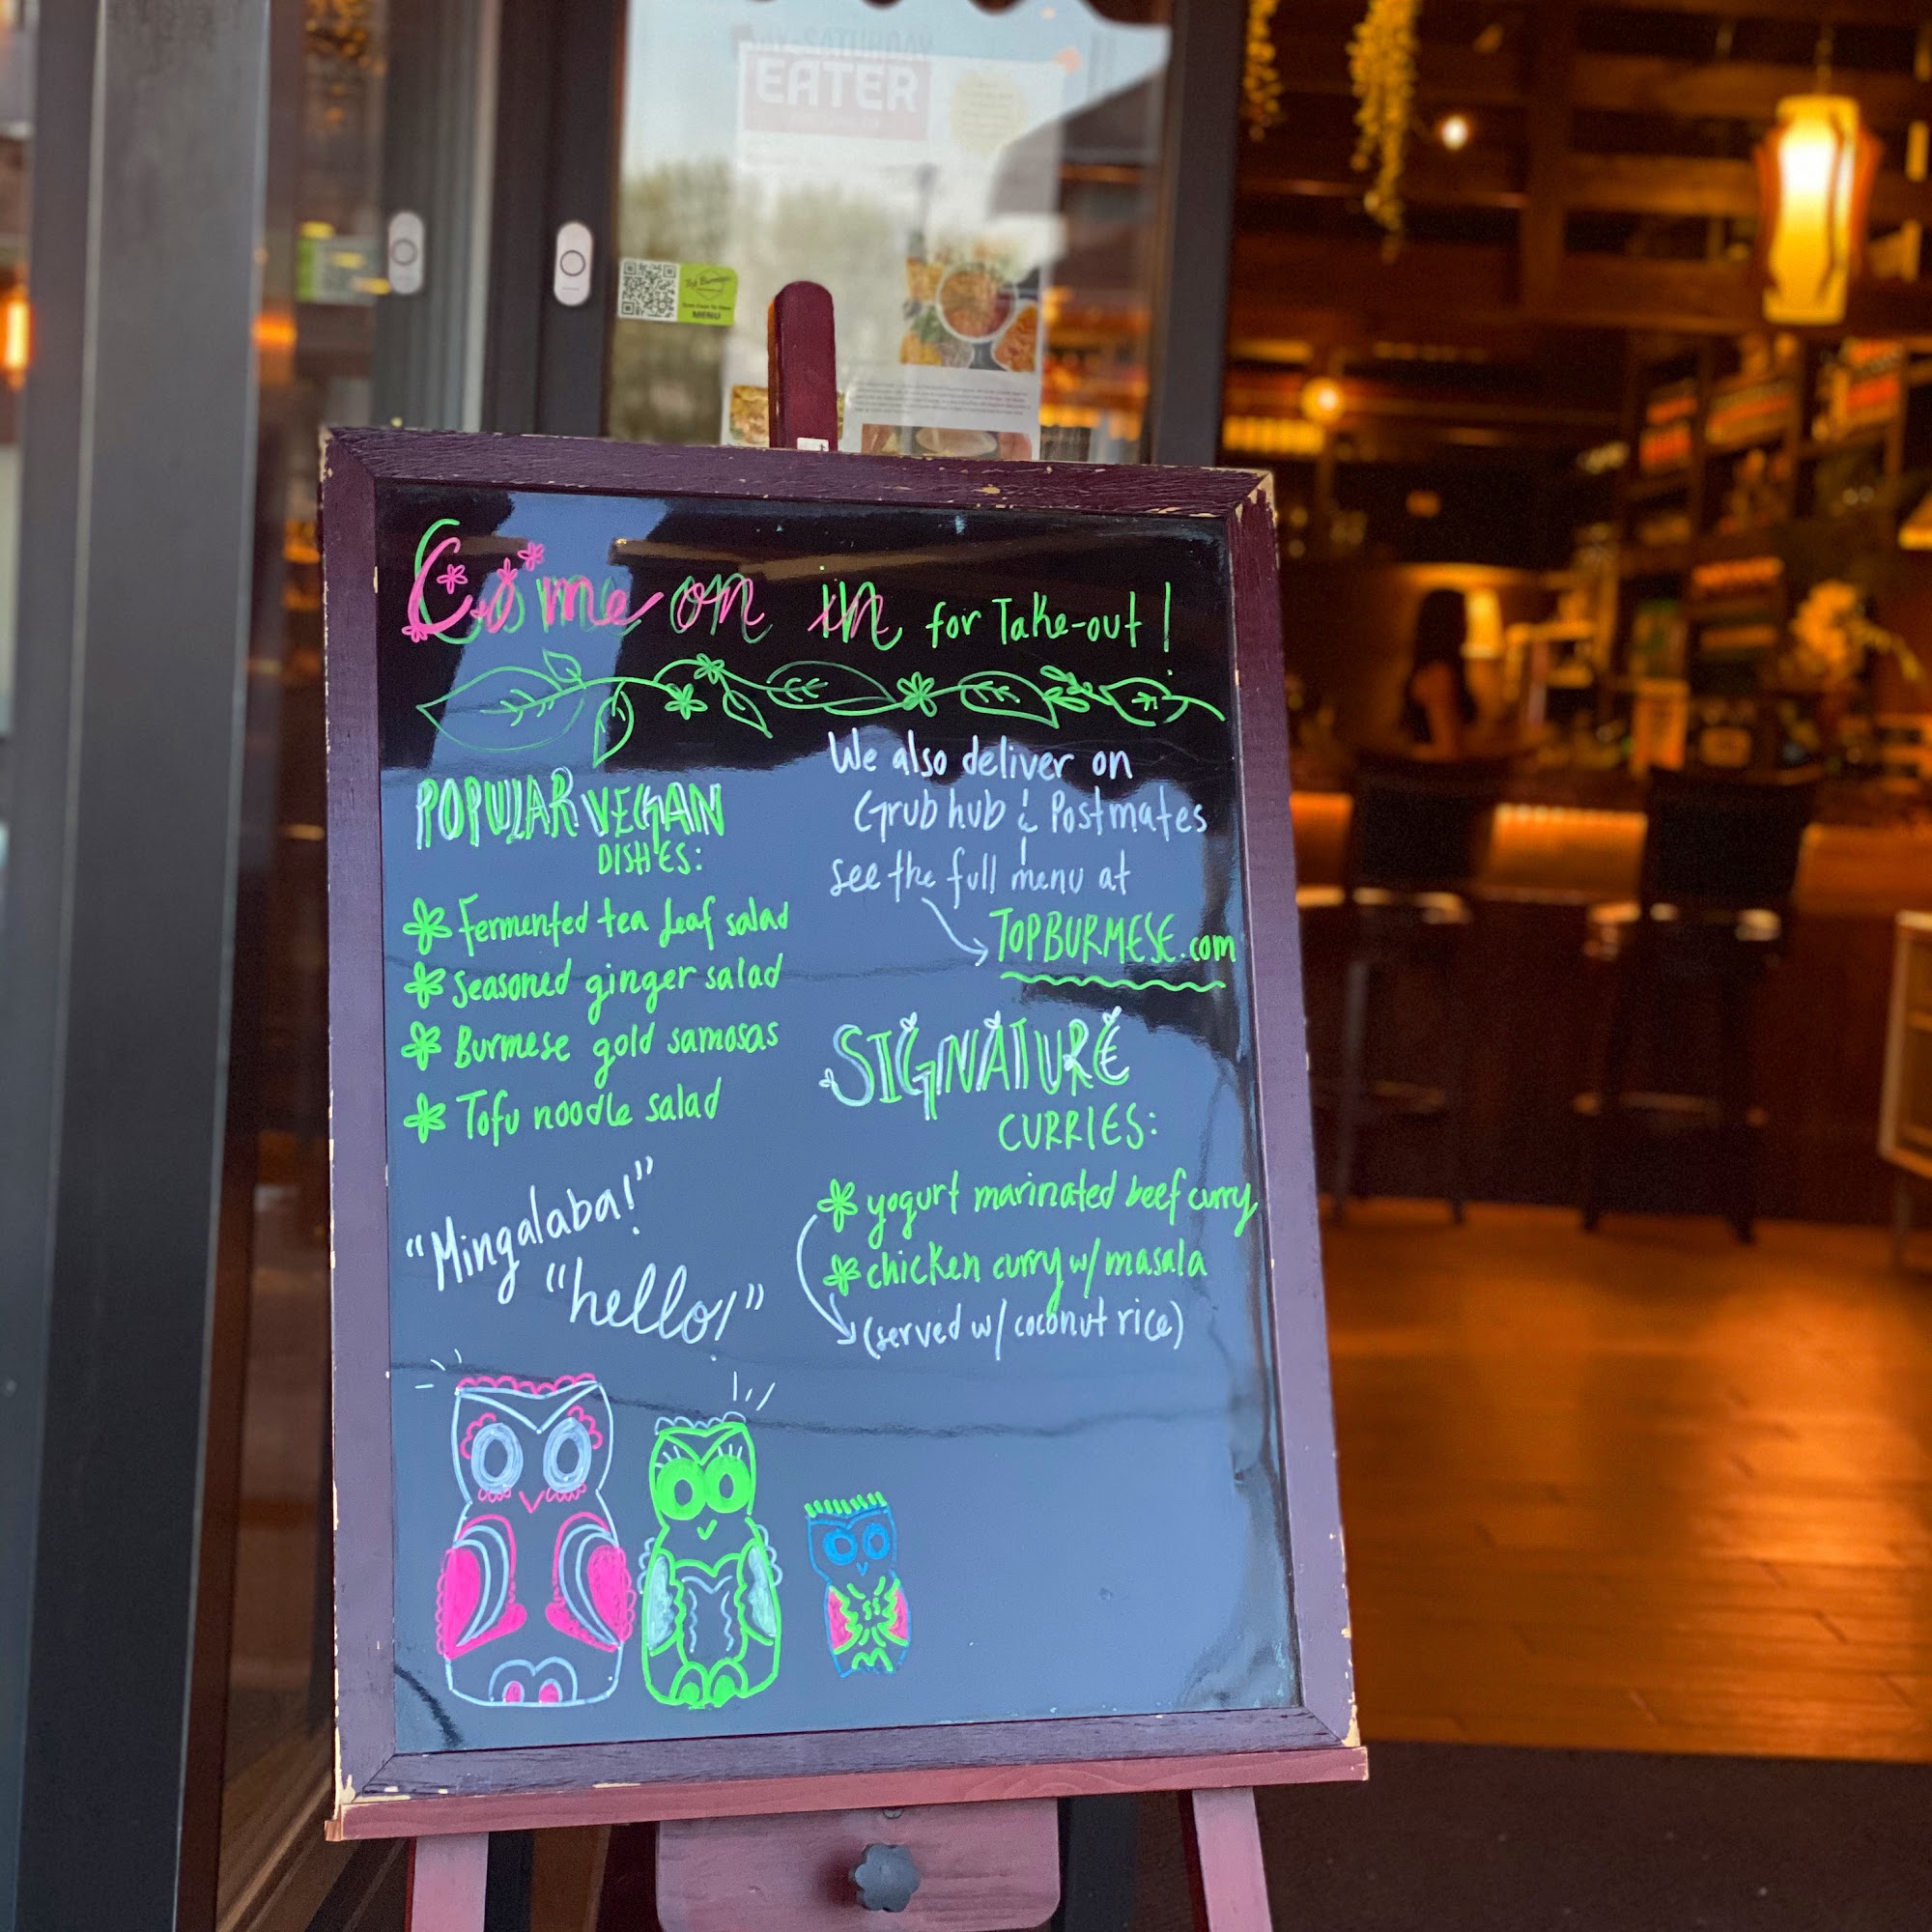 EATER
MENU
Come on in for Take-out!
POPULAR VEGAN
DISHES:
Fermented tea leaf salad
Seasoned ginger salad
Burmese gold samosas
Tofu noodle salad
"Mingalaba!"
"hello!"
We also deliver on
Grubhub & Postmates
see the full menu at
TOPBURMESE.com
SIGNATURE
CURRIES:
yogurt marinated beef curry
chicken curry w/ masala
(served w/ coconut rice)